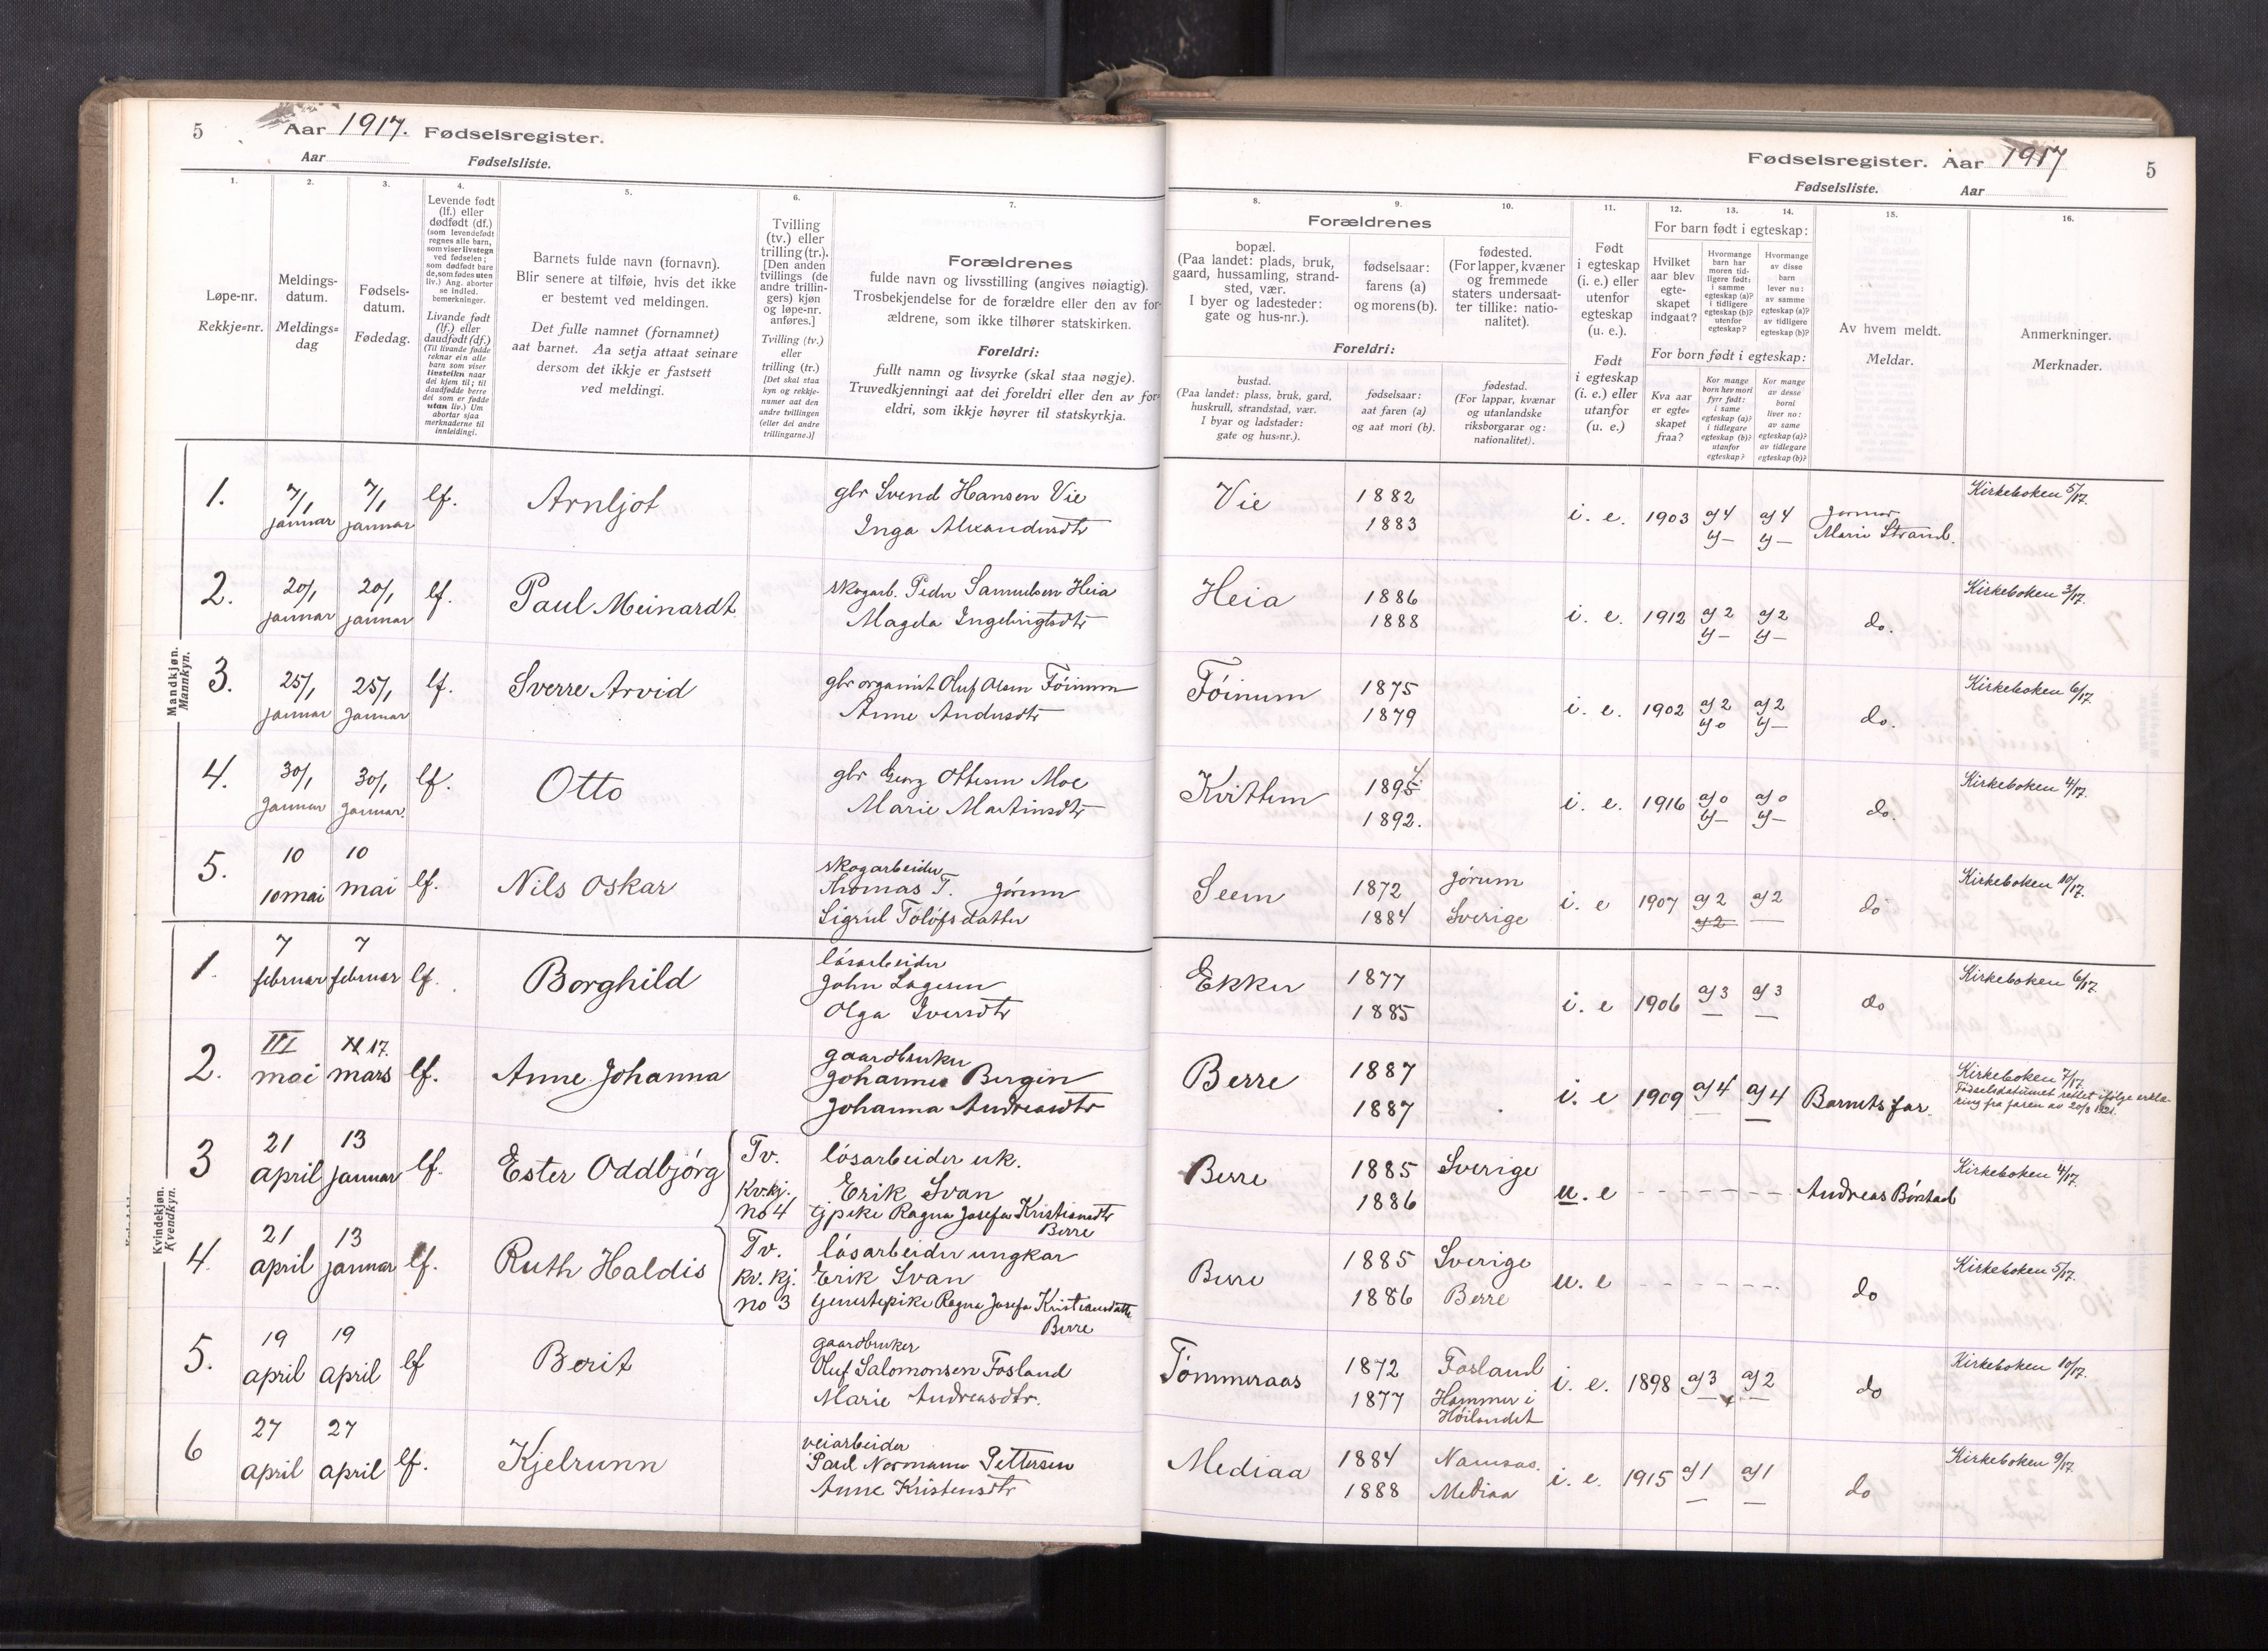 5
Aar 1917. Fødselsregister.
Aar
Fødselsliste.
1.
Løpe-nr.
Rekkje=nr.
2.
Meldings-
datum.
Meldings=
dag
3.
Fødsels-
datum.
Fødedag.
4.
Levende født
(lf.) eller
dødfødt (df.)
(som levendefødt
regnes alle barn,
som viser livstegn
ved fødselen;
som dødfødt bare
de, som fødes uten
liv.) Ang. aborter
se indled.
bemerkninger.
Livande født
(lf.) eller
daudfødt (df.)
(Til livande fødde
reknar ein alle
barn som viser
livsteikn naar
dei kjem til; til
daudfødde berre
dei som er fødde
utan liv.) Um
abortar sjaa
merknaderne til
innleidingi.
5.
Barnets fulde navn (fornavn).
Blir senere at tilføie, hvis det ikke
er bestemt ved meldingen.
Det fulle namnet (fornamnet)
aat barnet. Aa setja attaat seinare
dersom det ikkje er fastsett
ved meldingi.
6.
Tvilling
(tv.) eller
trilling (tr.).
[Den anden
tvillings (de
andre trillin-
gers) kjøn
og løpe-nr.
anføres.]
Tvilling (tv.)
eller
trilling (tr.)
[Det skal staa
kyn og rekkje-
numer aat den
andre tvillingen
(eller dei andre
trillingarne.)]
7.
Forældrenes
fulde navn og livsstilling (angives nøiagtig).
Trosbekjendelse for de forældre eller den av for-
ældrene, som ikke tilhører statskirken.
Foreldri:
fullt namn og livsyrke (skal staa nøgje).
Truvedkjenningi aat dei foreldri eller den av for-
eldri, som ikkje høyrer til statskyrkja.
Fødselsregister. Aar 1917
5
Fødselsliste.
Aar
8.
9.
10.
Forældrenes
bopæl.
(Paa landet: plads, bruk,
gaard, hussamling, strand-
sted, vær.
I byer og ladesteder:
gate og hus-nr.).
fødselsaar:
farens (a)
og morens (b).
fødested.
(For lapper, kvæner
og fremmede
staters undersaat-
ter tillike: natio-
nalitet).
Foreldri:
bustad.
(Paa landet: plass, bruk, gard,
huskrull, strandstad, vær.
I byar og ladstader:
gate og hus=nr.).
fødselsaar:
aat faren (a)
og aat mori (b).
fødestad.
(For lappar, kvænar
og utanlandske
riksborgarar og:
nationalitet).
11.
Født
i egteskap
(i. e.) eller
utenfor
egteskap
(u. e.).
Født
i egteskap
(i. e.) eller
utanfor
(u. e.)
12.
13.
14.
For barn født i egteskap:
Hvilket
aar blev
egte-
skapet
indgaat?
Hvormange
barn har
moren tid-
ligere født:
i samme
egteskap (a)?
i tidligere
egteskap (b)?
utenfor
egteskap?
Hvormange
av disse
barn
lever nu:
av samme
egteskap (a)?
av tidligere
egteskap (b)?
For born født i egteskap:
Kva aar
er egte=
skapet
fraa?
Kor mange
born hev mori
fyrr født:
i same
egteskap (a)?
i tidlegare
egteskap (b)?
utanfor
egteskap?
Kor mange
av desse
borni
liver no:
av same
egteskap (a)?
av tidlegare
egteskap (b)?
15.
Av hvem meldt.
Meldar.
16.
Anmerkninger.
Merknader.
Mandkjøn.
Mannkyn.
1. 7/1 januar 7/1 januar lf. Arnljot
gbr Svend Hansen Vie
Inga Alexandersdtr
Vie 1882 1883 i. e. 1903 a) 4 b) — a) 4 b) —
Jormor
Marie Strand.
Kirkeboken 5/17.
2. 20/1 januar 20/1 januar lf. Paul Meinardt
skogarb. Peder Samuelsen Heia
Magda Ingebrigtsdtr
Heia 1886 1888 i. e. 1912 a) 2 b) — a) 2 b) — do.
Kirkeboken 3/17.
3. 25/1 januar 25/1 januar lf. Sverre Arvid
gbr organist Oluf Olsen Föinum
Anne Andersdtr
Föinum 1875 1879 i. e. 1902 a) 2 b) 0 a) 2 b) — do.
Kirkeboken 6/17.
4. 30/1 januar 30/1 januar. lf. Otto
gbr Georg Ottesen Moe
Marie Martinsdtr
Kvittem 1895 4. 1892. i. e. 1916 a) 0 b) — a) 0 b) — do.
Kirkeboken 4/17.
5. 10 10 mai 10 mai lf. Nils Oskar
skogarbeider
Thomas T. Jörum
Sigrid Tolöfsdatter
Seem 1872 Jörum 1884 Sverige i. e 1907 a) 2 a) 2 a) 2 — do
Kirkeboken 10/17.
Kvindekjøn.
Kvendkyn.
1. 7 februar 7 februar lf. Borghild
løsarbeider
John Lagesen
Olga Iversdtr
Ekker 1877 1885 i. e 1906 a) 3 — a) 3 — do
Kirkeboken 6/17.
2. III mai 17. mars lf. Anne Johanna
gaardbruker
Johannes Bergin
Johanna Andreasdtr
Berre 1887 1887 i. e 1909 a) 4 — a) 4 — Barnets far.
Kirkeboken 7/17.
Fødselsdatumet rettet ifølge erklæ-
ring fra faren av 20/8 1921.
3 21 april 13 januar lf. Ester Oddbjörg
Tv.
Kv. kj.
no 4
løsarbeider erk.
Erik Svan
gpike Ragna Josefa Kristiansdtr
Berre
Berre 1885 Sverige 1886 u. e - - - - - - - Andreas Börstad
Kirkeboken 4/17.
4. 21 april 13 januar lf. Ruth Haldis
Tv.
kv. kj.
no 3
løsarbeider ungkar
Erik Svan
tjenestepike Ragna Josefa Kristiansdatter
Berre
Berre 1885 Sverige 1886 Berre u. e - - - - - - - do
Kirkeboken 5/17.
5. 19 april 19 april lf Berit
gaardbruker
Oluf Salomonsen Fosland
Marie Andreasdtr.
Tömmeraas 1872 Fosland 1877 Hammer i Höilandet i. e. 1898 a) 3 — a) 2 — do
Kirkeboken 10/17.
6 27 april 27 april lf. Kjelrunn
veiarbeider
Paul Normann Pettersen
Anne Kristensdtr
Mediaa 1884 Namsos. 1888 Mediaa i. e. 1915 a) 1 — a) 1 — do
Kirkeboken 9/17.